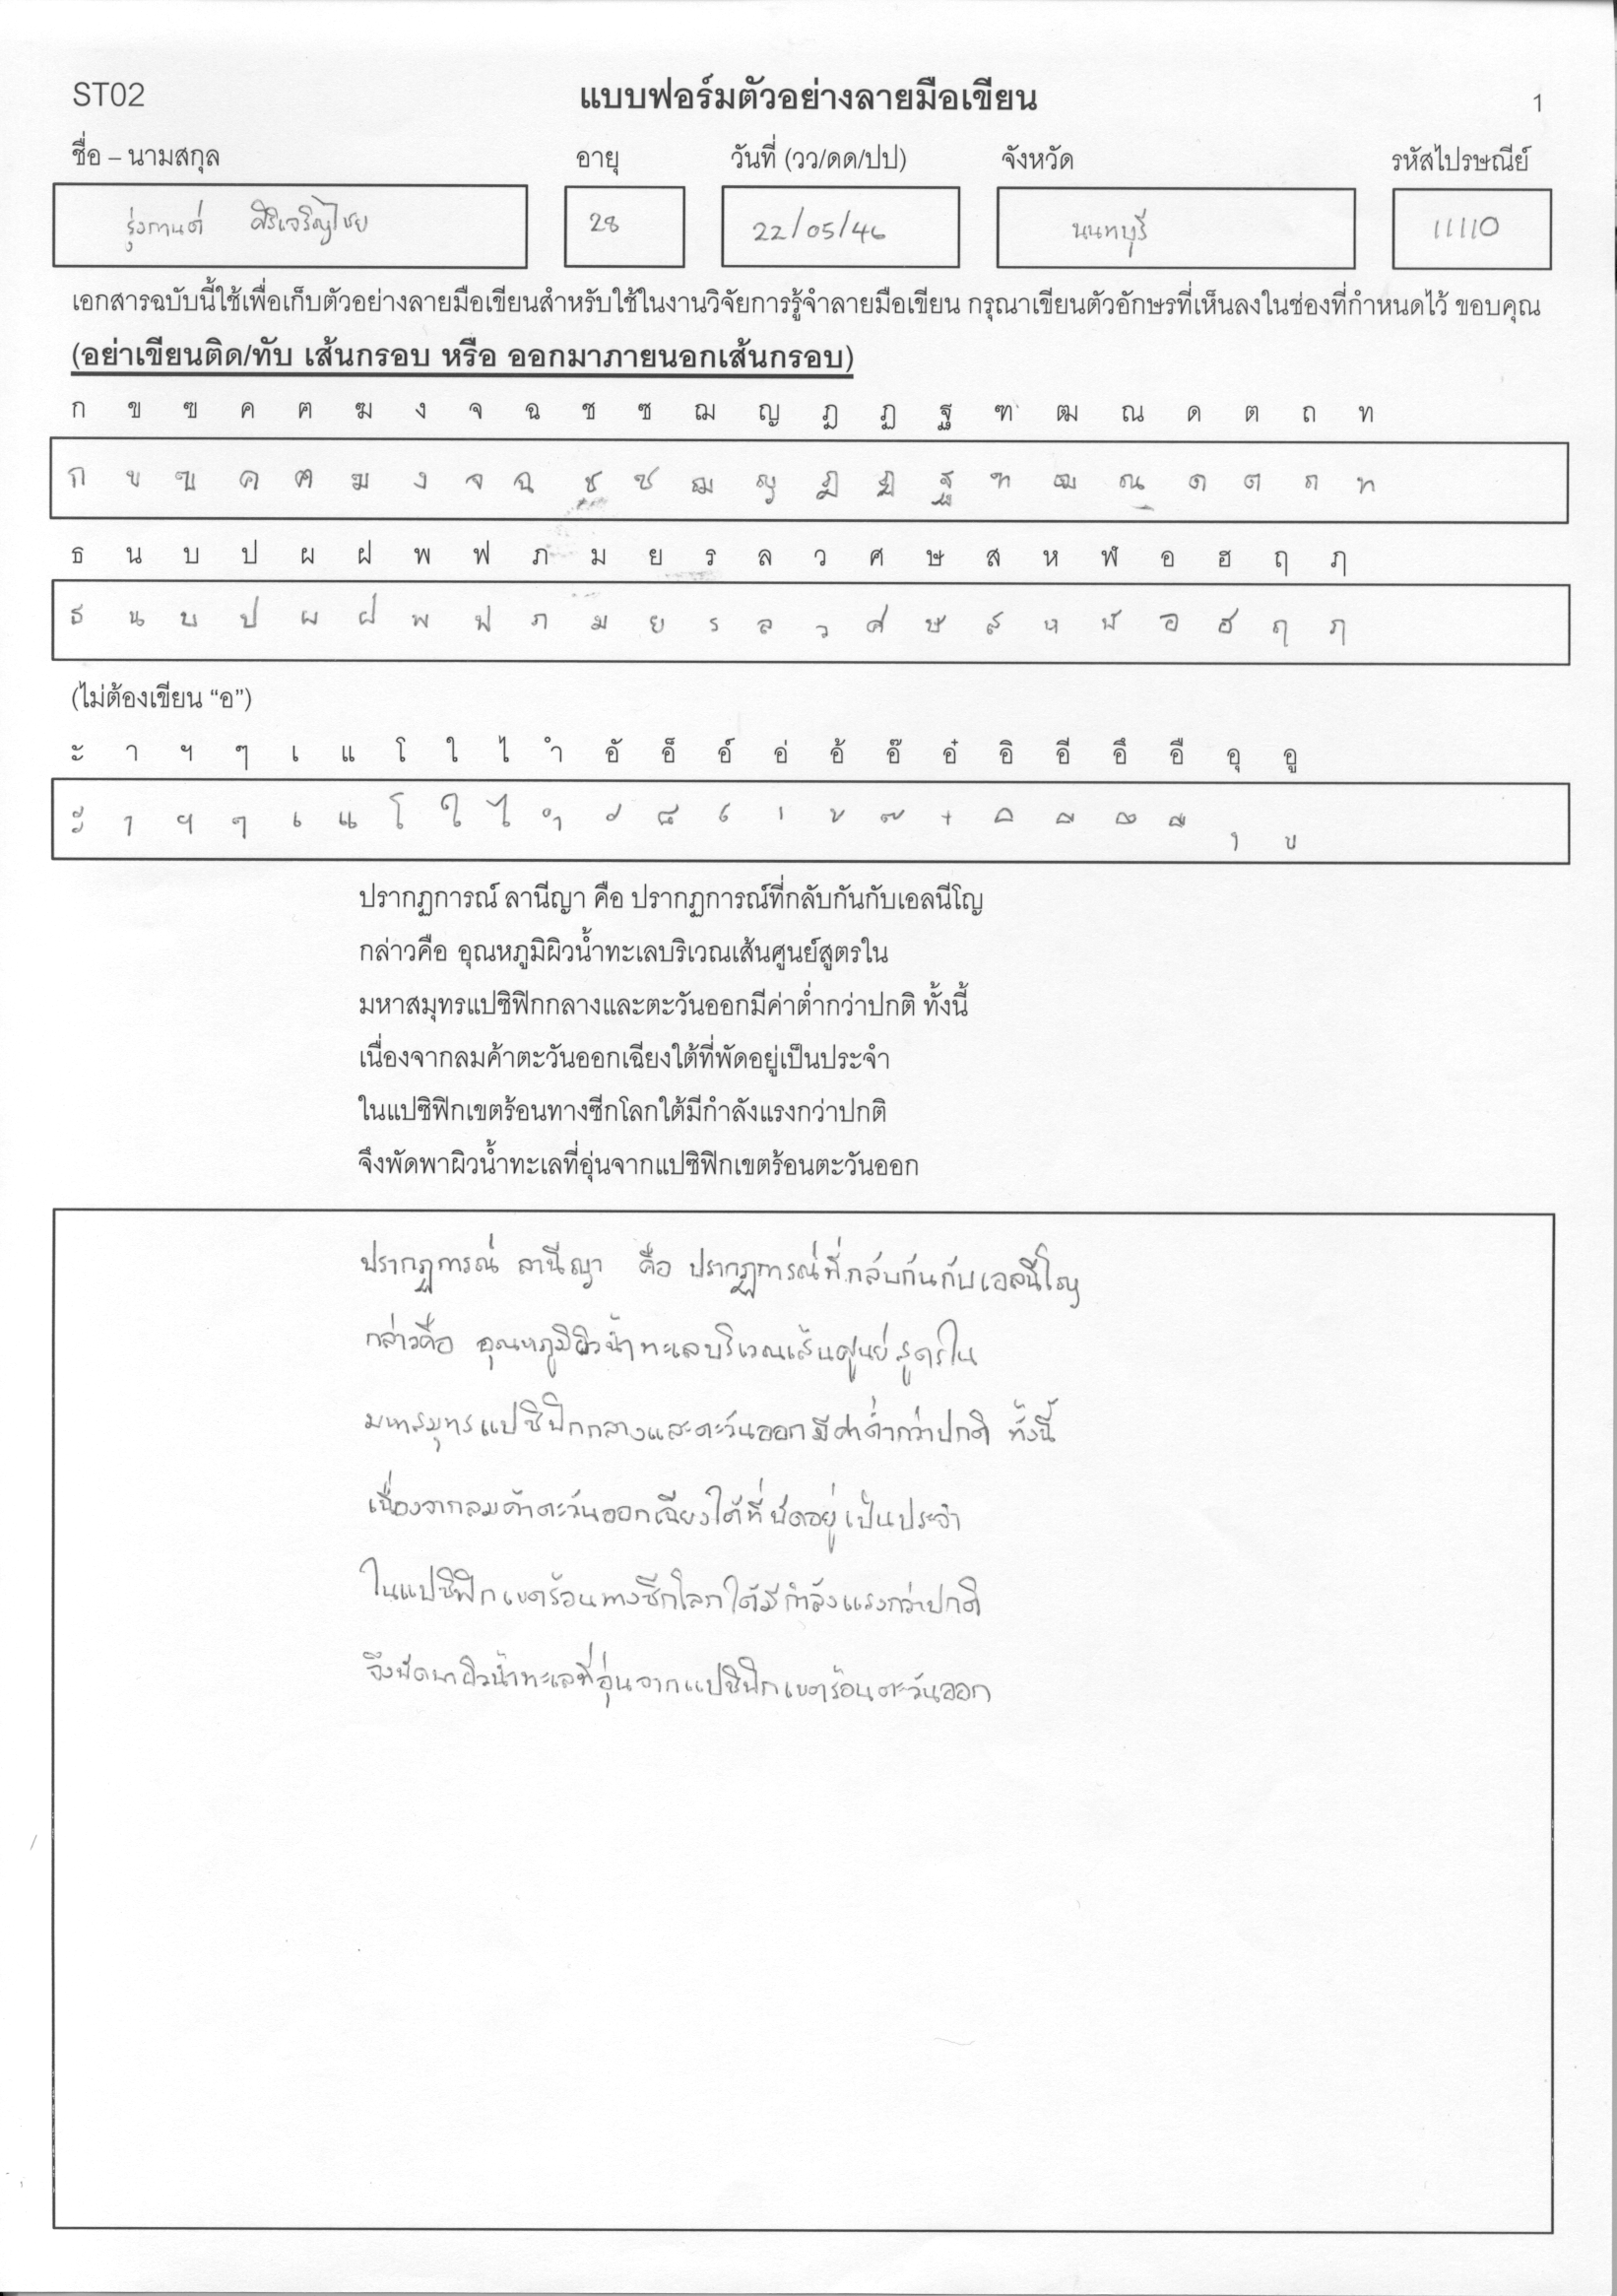 ST02 แบบฟอร์มตัวอย่างลายมือเขียน 1
ชื่อ – นามสกุล อายุ วันที่ (วว/ดด/ปป) จังหวัด รหัสไปรษณีย์
รุ่งกานต์ ศิริเจริญไชย 28 22/05/46 นนทบุรี 11110
เอกสารฉบับนี้ใช้เพื่อเก็บตัวอย่างลายมือเขียนสำหรับใช้ในงานวิจัยการรู้จำลายมือเขียน กรุณาเขียนตัวอักษรที่เห็นลงในช่องที่กำหนดไว้ ขอบคุณ
(อย่าเขียนติด/ทับ เส้นกรอบ หรือ ออกมาภายนอกเส้นกรอบ)
ก ข ฃ ค ฅ ฆ ง จ ฉ ช ซ ฌ ญ ฎ ฏ ฐ ฑ ฒ ณ ด ต ถ ท
ก ข ฃ ค ฅ ฆ ง จ ฉ ช ซ ฌ ญ ฎ ฏ ฐ ฑ ฒ ณ ด ต ถ ท
ธ น บ ป ผ ฝ พ ฟ ภ ม ย ร ล ว ศ ษ ส ห ฬ อ ฮ ฤ ฦ
ธ น บ ป ผ ฝ พ ฟ ภ ม ย ร ล ว ศ ษ ส ห ฬ อ ฮ ฤ ฦ
(ไม่ต้องเขียน “อ”)
ะ า ฯ ๆ เ แ โ ใ ไ ำ อั อ็ อ์ อ่ อ้ อ๊ อ๋ อิ อี อึ อื อุ อู
ะ า ฯ ๆ เ แ โ ใ ไ ำ ั ็ ์ ่ ้ ๊ ๋ ิ ี ึ ื ุ ู
ปรากฏการณ์ ลานีญา คือ ปรากฏการณ์ที่กลับกันกับเอลนีโญ
กล่าวคือ อุณหภูมิผิวน้ำทะเลบริเวณเส้นศูนย์สูตรใน
มหาสมุทรแปซิฟิกกลางและตะวันออกมีค่าต่ำกว่าปกติ ทั้งนี้
เนื่องจากลมค้าตะวันออกเฉียงใต้ที่พัดอยู่เป็นประจำ
ในแปซิฟิกเขตร้อนทางซีกโลกใต้มีกำลังแรงกว่าปกติ
จึงพัดพาผิวน้ำทะเลที่อุ่นจากแปซิฟิกเขตร้อนตะวันออก
ปรากฏการณ์ ลานีญา คือ ปรากฏการณ์ที่กลับกันกับเอลนีโญ
กล่าวคือ อุณหภูมิผิวน้ำทะเลบริเวณเส้นศูนย์สูตรใน
มหาสมุทรแปซิฟิกกลางและตะวันออกมีค่าต่ำกว่าปกติ ทั้งนี้
เนื่องจากลมค้าตะวันออกเฉียงใต้ที่พัดอยู่เป็นประจำ
ในแปซิฟิกเขตร้อนทางซีกโลกใต้มีกำลังแรงกว่าปกติ
จึงพัดพาผิวน้ำทะเลที่อุ่นจากแปซิฟิกเขตร้อนตะวันออก